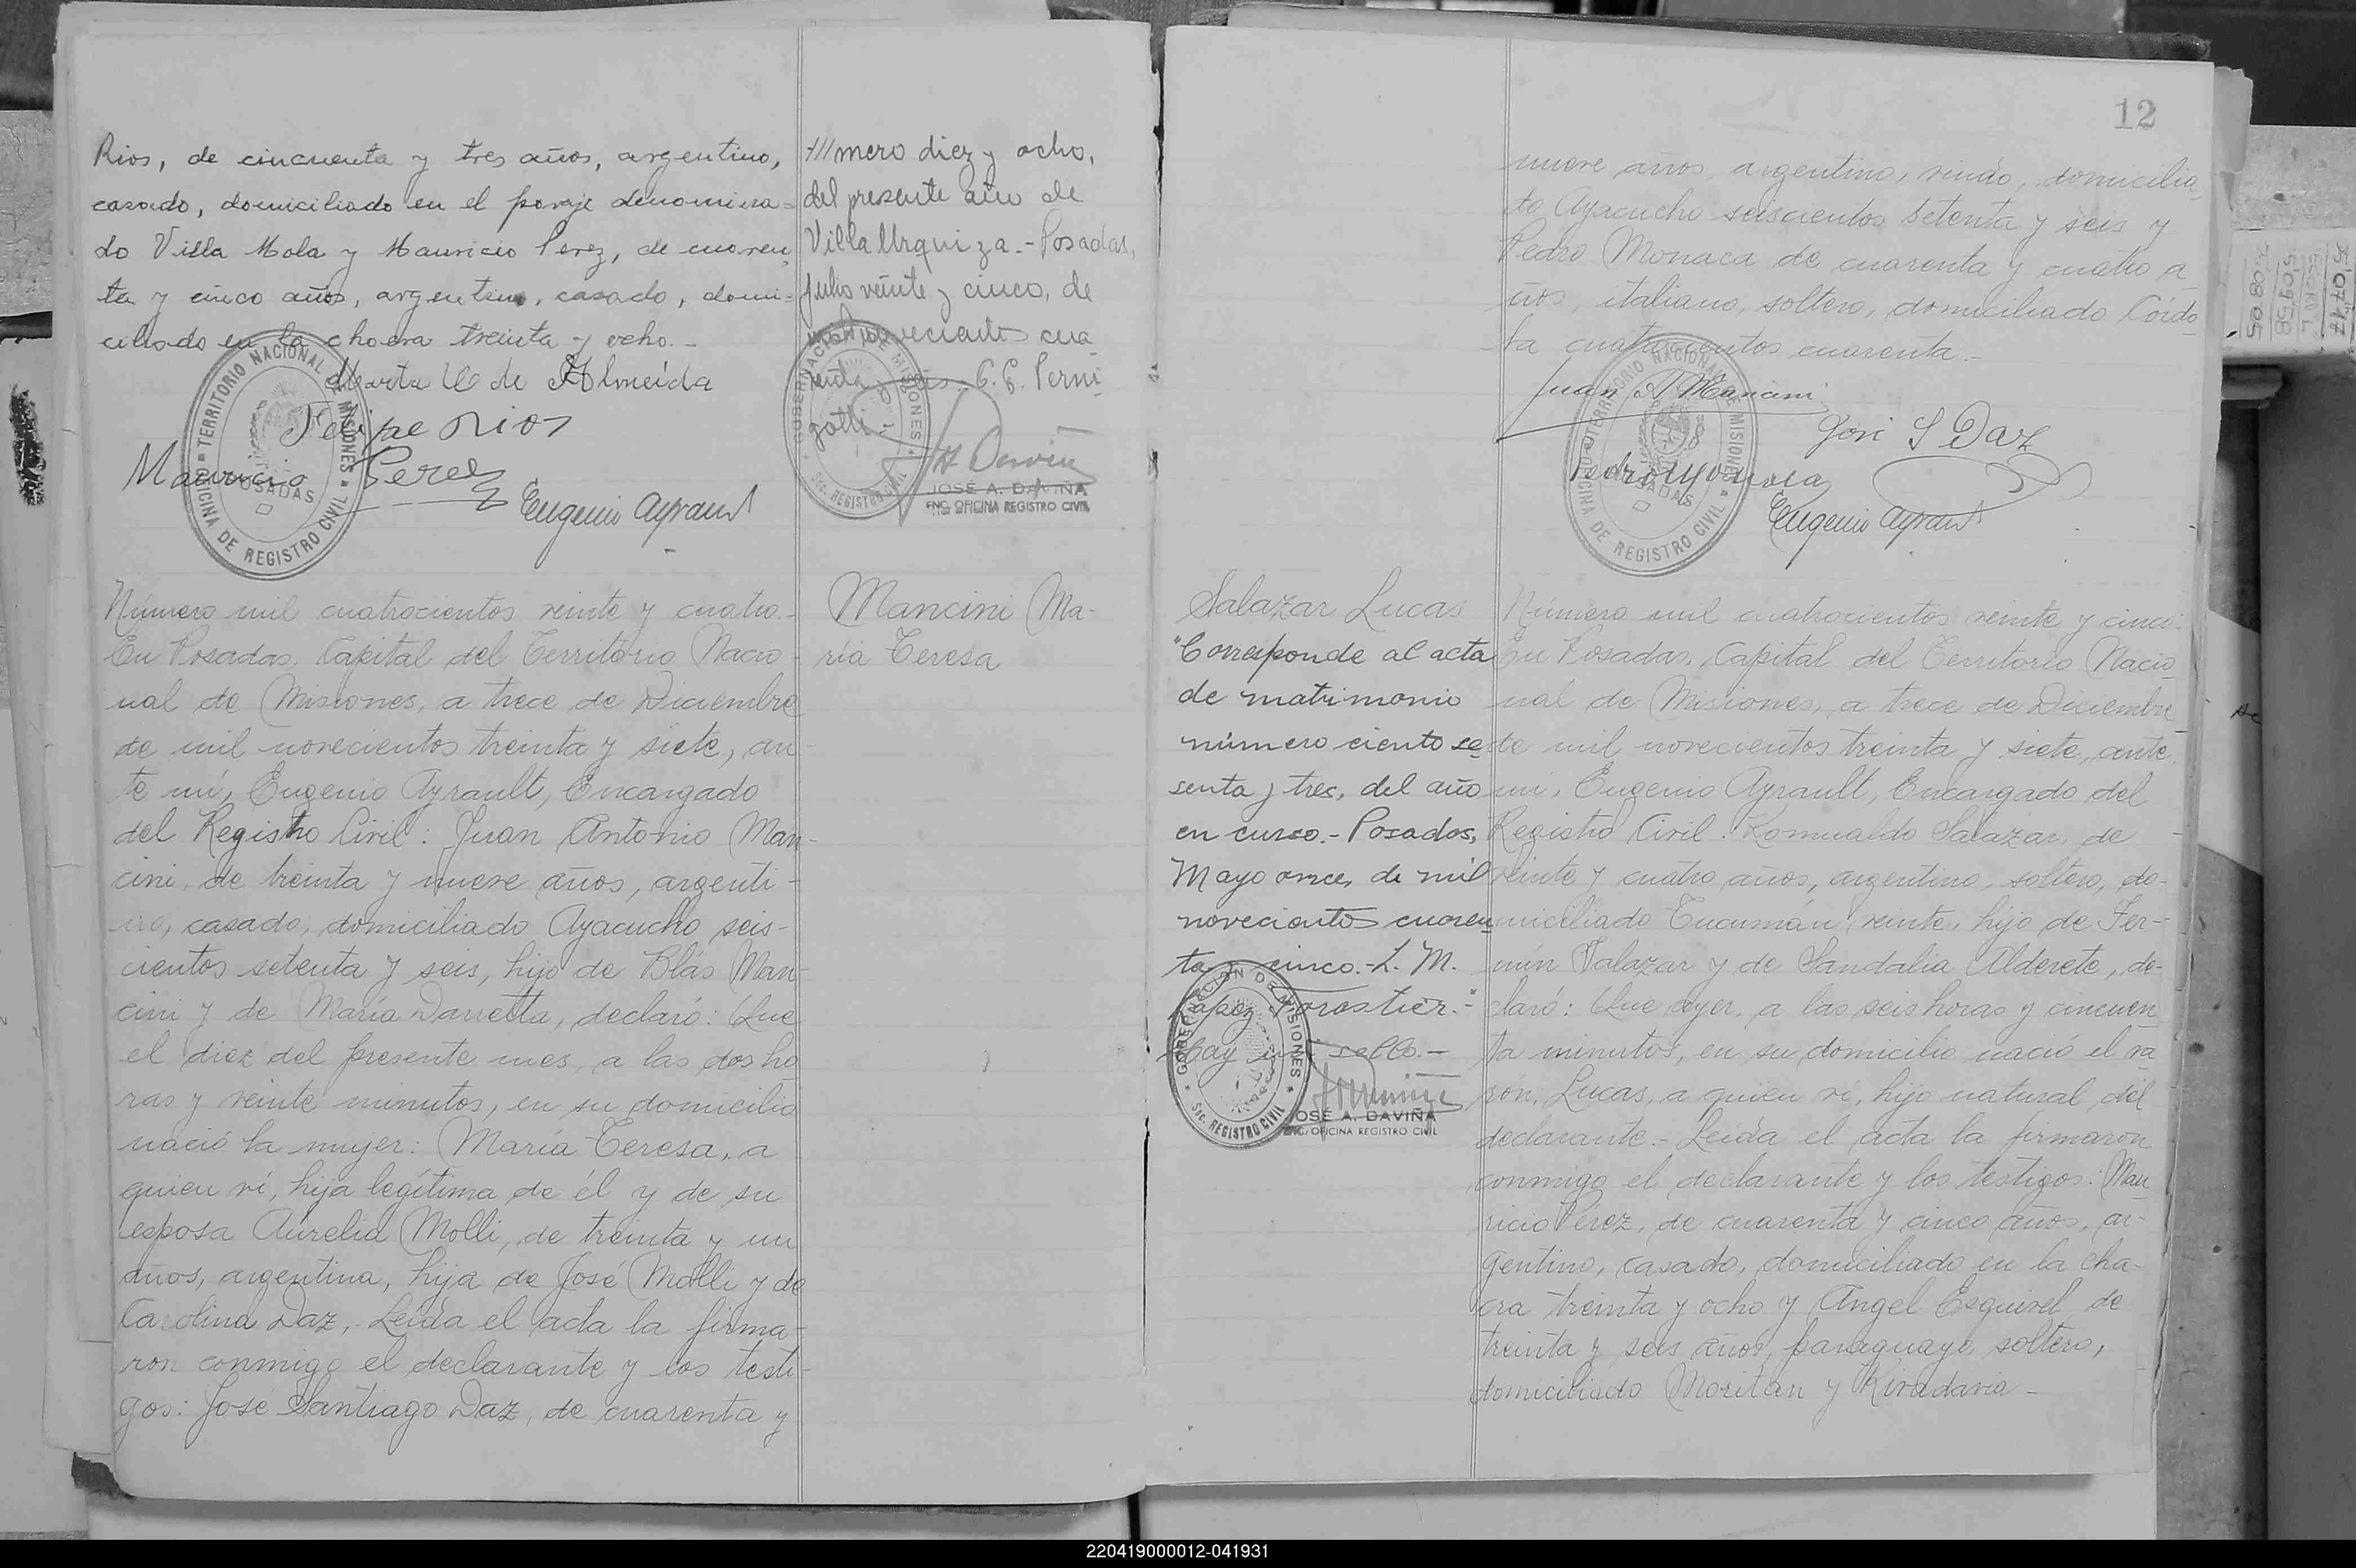 Rios, de cincuenta y tres años, argentino,
casado, domiciliado en el paraje denomina=
do Villa Mola y Mauricio Perez, de cuaren
ta y cinco años, argentino, casado, domi=
ciliado en la chacra treinta y ocho.-
Marta C de Almeida
Felipe Rios
Mauricio Perez
Eugenio Ayrault
TERRITORIO NACIONAL DE MISIONES
POSADAS
OFICINA DE REGISTRO CIVIL
///mero diez y ocho,
del presente año de
Villa Urquiza.- Posadas,
Julio veinte y cinco, de
mil novecientos cua
renta y seis.- C. E. Perni
gotti.-
GOBERNACION DE MISIONES
Sec. REGISTRO CIVIL
JOSÉ A. DAVIÑA
ENC. OFICINA REGISTRO CIVIL
Número mil cuatrocientos veinte y cuatro.-
En Posadas, Capital del Territorio Nacio-
nal de Misiones, a trece de Diciembre
de mil novecientos treinta y siete, an-
te mí, Eugenio Ayrault, Encargado
del Registro Civil: Juan Antonio Man-
cini, de treinta y nueve años, argenti-
no, casado, domiciliado Ayacucho seis-
cientos setenta y seis, hijo de Blás Man-
cini y de María Darretta, declaró: Que
el diez del presente mes, a las dos ho
ras y veinte minutos, en su domicilio
nació la mujer: María Teresa, a
quien ví, hija legítima de él y de su
esposa Aurelia Molli, de treinta y un
años, argentina, hija de José Molli y de
Carolina Daz,.- Leída el acta la firma-
ron conmigo el declarante y los testi-
gos: José Santiago Daz, de cuarenta y
Mancini Ma-
ría Teresa
12
nueve años, argentino, viudo, domicilia
do Ayacucho seiscientos setenta y seis y
Pedro Monaca de cuarenta y cuatro a
ños, italiano, soltero, domiciliado Córdo
ba cuatrocientos cuarenta.-
Juan A Mancini
José S Daz
Pedro Monaca
Eugenio Ayrault
TERRITORIO NACIONAL DE MISIONES
POSADAS
OFICINA DE REGISTRO CIVIL
Salazar Lucas
"Corresponde al acta
de matrimonio
número ciento se
senta y tres, del año
en curso.- Posadas,
Mayo once, de mil
novecientos cuaren
ta y cinco.- L. M.
Lopez Forastier.-"
Hay un sello.-
GOBERNACION DE MISIONES
Sec. REGISTRO CIVIL
JOSÉ A. DAVIÑA
ENC. OFICINA REGISTRO CIVIL
Número mil cuatrocientos veinte y cinco.-
En Posadas, Capital del Territorio Nacio
nal de Misiones, a trece de Diciembre
de mil novecientos treinta y siete, ante
mí, Eugenio Ayrault, Encargado del
Registro Civil: Romualdo Salazar, de
veinte y cuatro años, argentino, soltero, do-
miciliado Tucumán veinte, hijo de Fer-
mín Salazar y de Sandalia Alderete, de-
claró: Que ayer, a las seis horas y cincuen
ta minutos, en su domicilio nació el va
rón, Lucas, a quien ví, hijo natural del
declarante.- Leída el acta la firmaron
conmigo el declarante y los testigos: Mau
ricio Pérez, de cuarenta y cinco años, ar-
gentino, casado, domiciliado en la cha-
cra treinta y ocho y Angel Esquivel de
treinta y seis años, paraguayo, soltero,
domiciliado Moritán y Rivadavia -
220419000012-041931